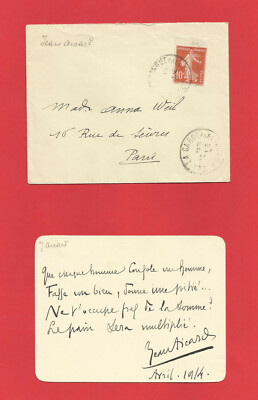 Jean Aicard
10
Made Anna Weil
16 Rue de Sèvres
Paris
LA GARDE
J Aicard
Que chaque homme console un homme,
Fasse un bien, donne une pitié...
Ne t'occupe pas de la somme :
Le pain sera multiplié.
Jean Aicard
Avril. 1914.